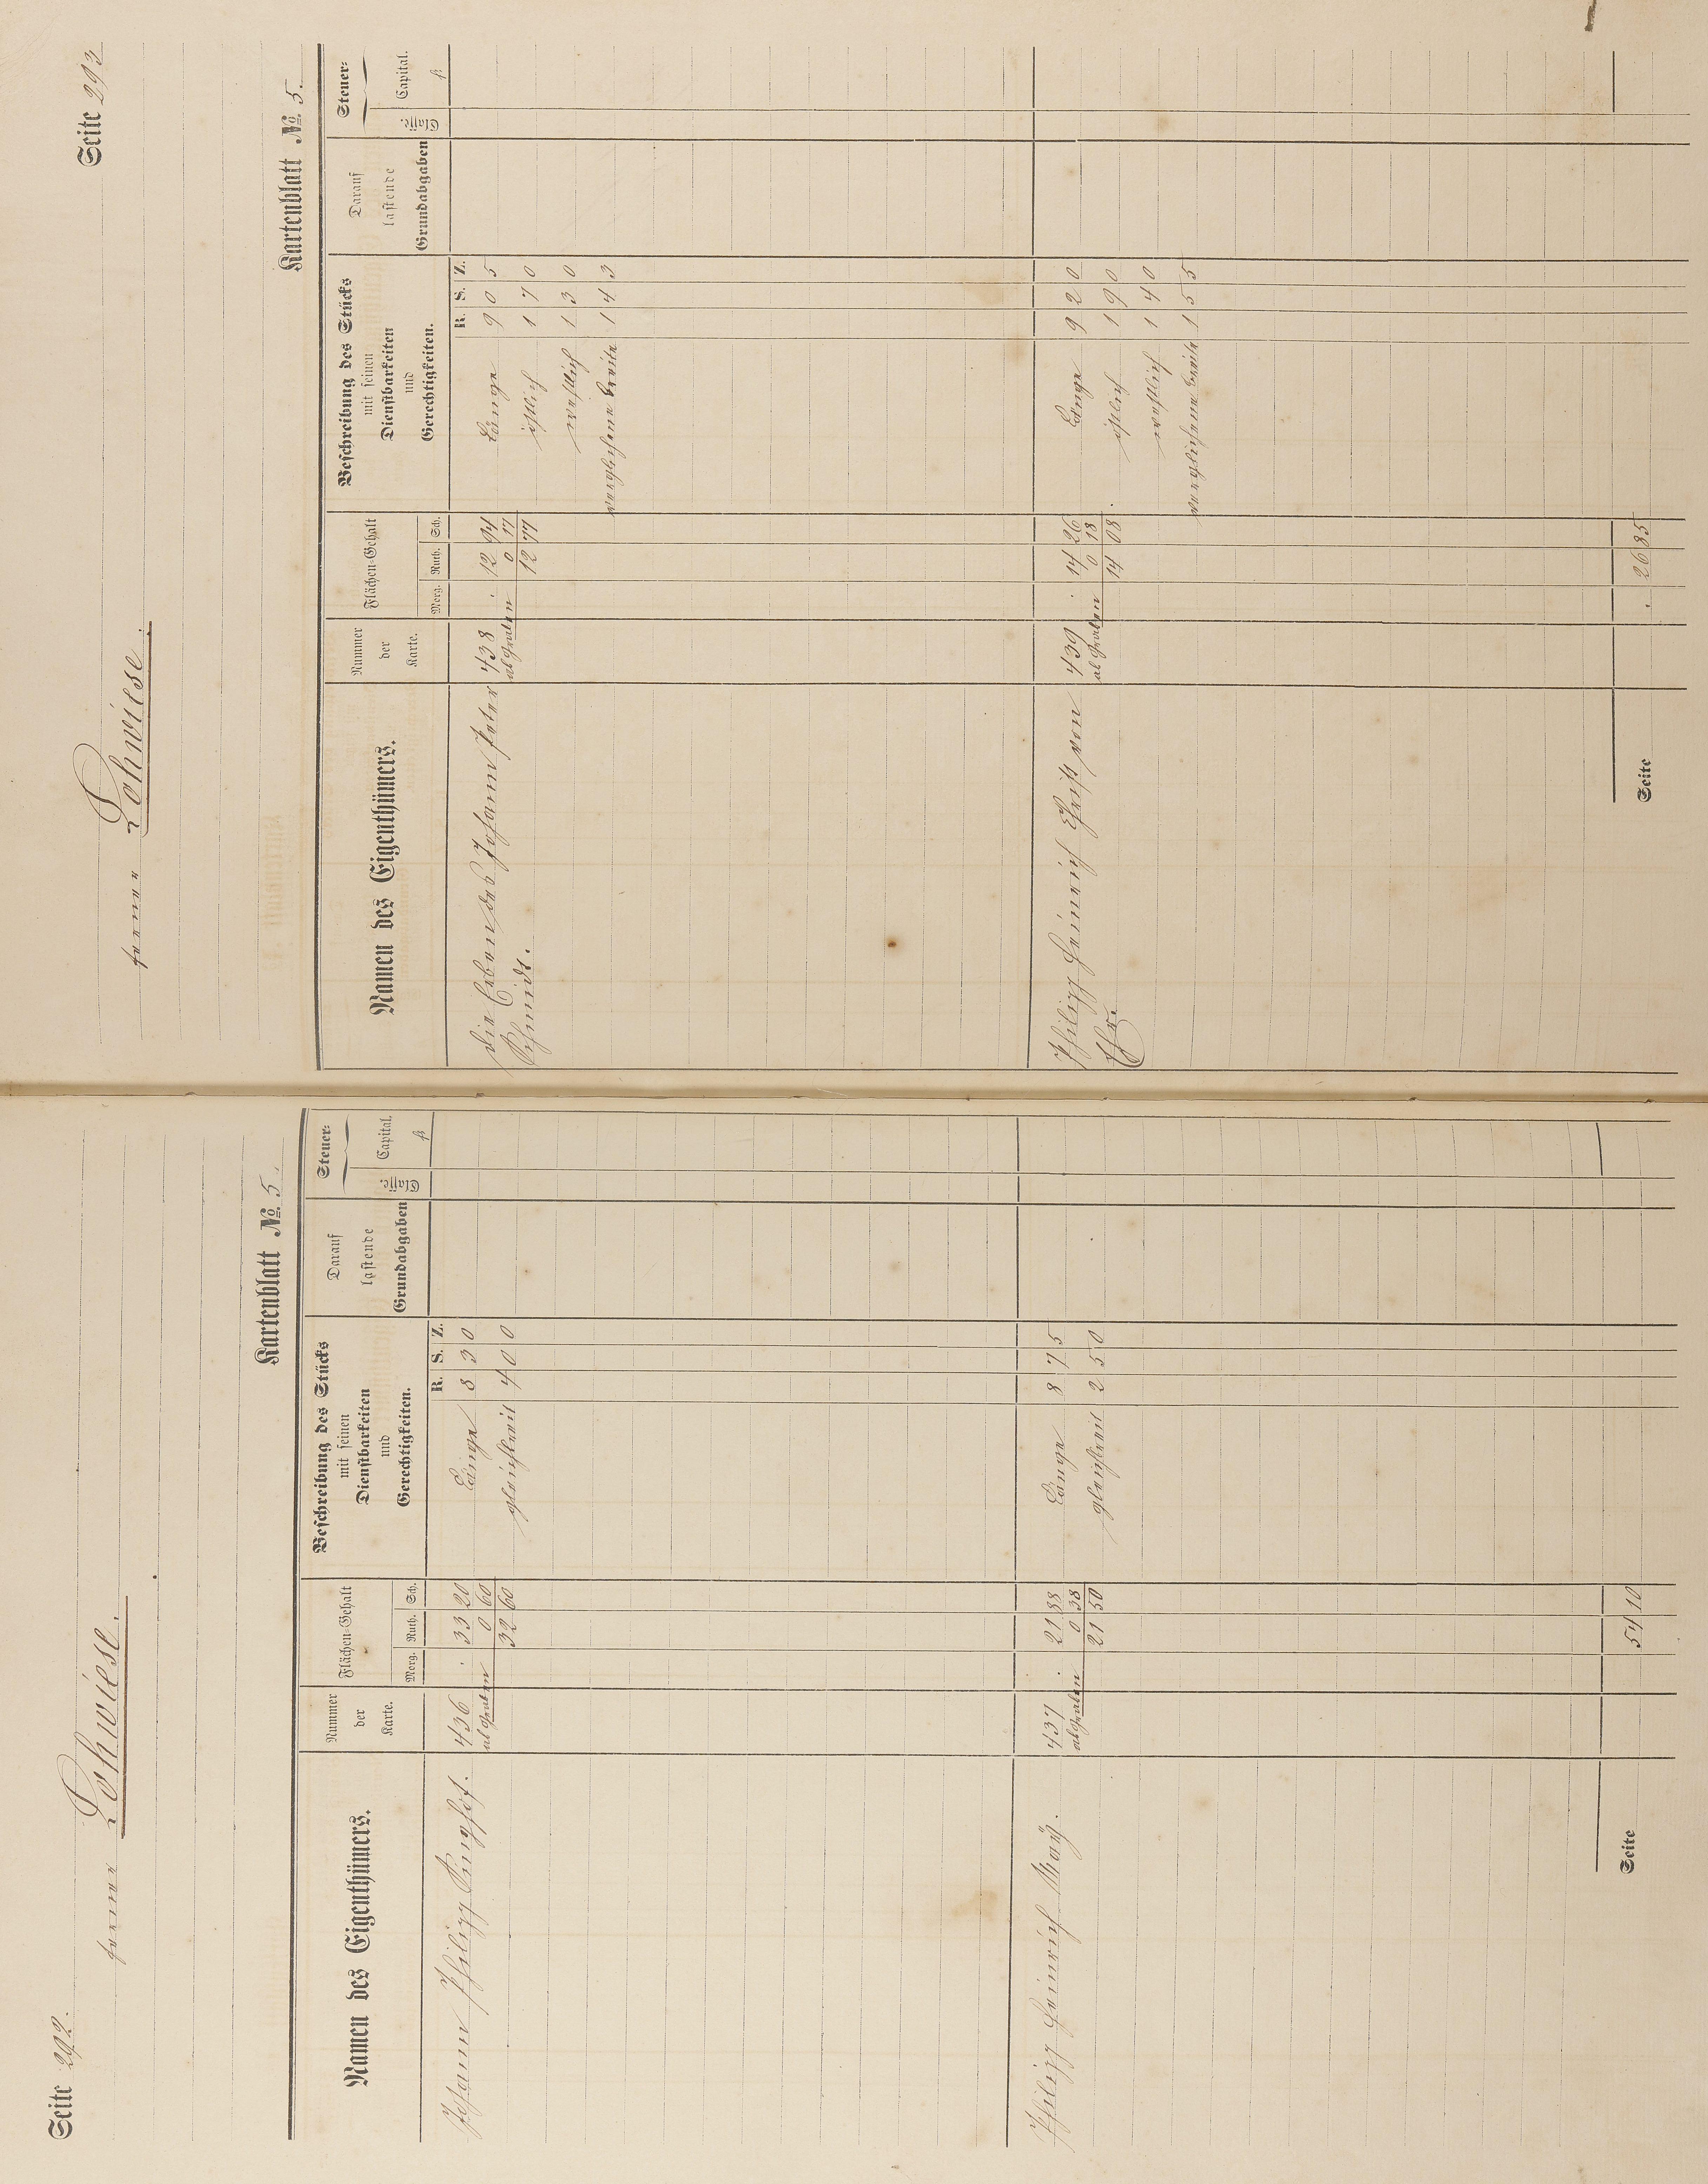 Seite 292.
ferner Lohwiese.
Kartenblatt No. 5.
Namen des Eigenthümers.
Nummer der Karte.
Flächen-Gehalt
Morg. Ruth. Sch.
Beschreibung des Stücks
mit seinen
Dienstbarkeiten
und
Gerechtigkeiten.
R. S. Z.
Darauf
lastende
Grundabgaben
Steuer-
Classe. Capital.
fl.
Johann Philipp 436 . 33 20 Länge 8 3 0
ab Graben 0 60
32 60 gleichbreit 4 0 0
Philipp Heinrich May. 437 . 21 88 Länge 8 7 5
ab Graben 0 38
21 50 gleichbreit 2 5 0
Seite 54 10
Seite 293
ferner Lohwiese.
Kartenblatt No. 5.
Namen des Eigenthümers.
Nummer der Karte.
Flächen-Gehalt
Morg. Ruth. Sch.
Beschreibung des Stücks
mit seinen
Dienstbarkeiten
und
Gerechtigkeiten.
R. S. Z.
Darauf
lastende
Grundabgaben
Steuer-
Classe. Capital.
fl.
die Erben des Johann Peter 438 . 12 94 Länge 9 0 5
Schmidt. ab Graben 0 17
12 77 östlich 1 7 0
westlich 1 3 0
verglichene Breite 1 4 3
Philipp Heinrich Christ von 439 . 14 26 Länge 9 2 0
ab Graben 0 18
14 08 östlich 1 9 0
westlich 1 4 0
verglichene Breite 1 5 5
Seite . 26 85